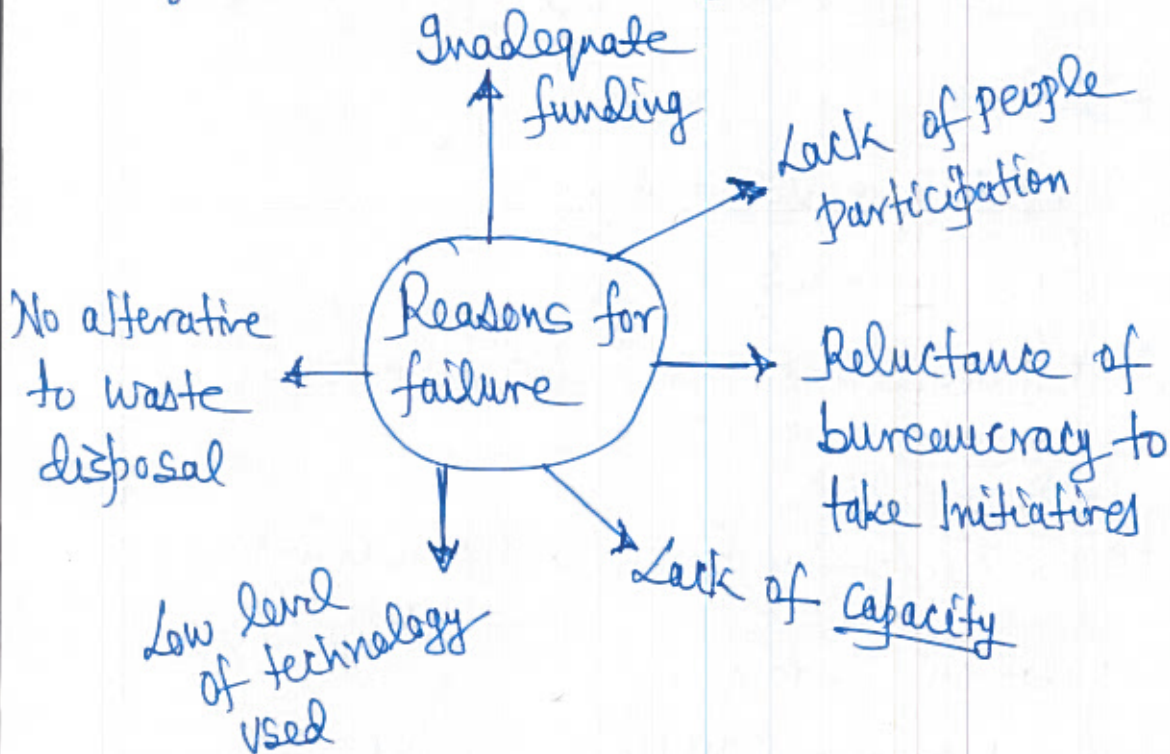 Inadequate
funding
Lack of people
participation
Reasons for
failure
No alterative
to waste
disposal
Reluctance of
bureaucracy to
take Initiatires
Lack of capacity
Low level
of technology
used